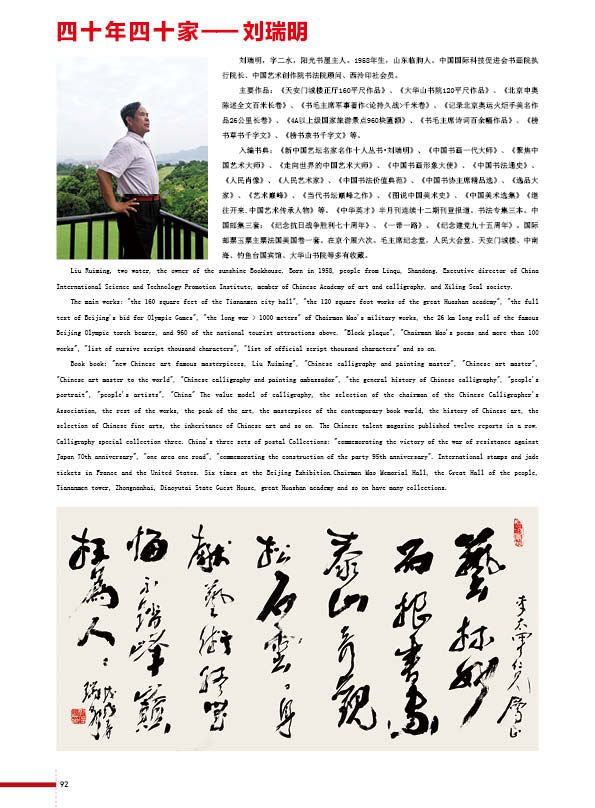 四十年四十家——刘瑞明
刘瑞明，字二水，阳光书屋主人。1958年生，山东临朐人。中国国际科技促进会书画院执
行院长、中国艺术创作院书法院顾问、西泠印社会员。
主要作品：《天安门城楼正厅160平尺作品》、《大华山书院120平尺作品》、《北京申奥
陈述全文百米长卷》、《书毛主席军事著作<论持久战>千米卷》、《记录北京奥运火炬手美名作
品26公里长卷》、《4A以上级国家旅游景点960块匾额》、《书毛主席诗词百余幅作品》、《榜
书草书千字文》、《榜书隶书千字文》等。
入编书典：《新中国艺坛名家名作十人丛书·刘瑞明》、《中国书画一代大师》、《聚焦中
国艺术大师》、《走向世界的中国艺术大师》、《中国书画形象大使》、《中国书法通史》、
《人民肖像》、《人民艺术家》、《中国书法价值典范》、《中国书协主席精品选》、《逸品大
家》、《艺术巅峰》、《当代书坛巅峰之作》、《图说中国美术史》、《中国美术选集》《继
往开来.中国艺术传承人物》等。《中华英才》半月刊连续十二期刊登报道。书法专集三本。中
国邮集三套：《纪念抗日战争胜利七十周年》、《一带一路》、《纪念建党九十五周年》。国际
邮票玉票主票法国美国卷一套。在京个展六次。毛主席纪念堂，人民大会堂、天安门城楼、中南
海、钓鱼台国宾馆、大华山书院等多有收藏。
Liu Ruiming, two water, the owner of the sunshine Bookhouse. Born in 1958, people from Linqu, Shandong. Executive director of China
International Science and Technology Promotion Institute, member of Chinese Academy of art and calligraphy, and Xiling Seal society.
The main works: "the 160 square feet of the Tiananmen city hall", "the 120 square foot works of the great Huashan academy", "the full
text of Beijing's bid for Olympic Games", "the long war > 1000 meters" of Chairman Mao's military works, the 26 km long roll of the famous
Beijing Olympic torch bearer, and 960 of the national tourist attractions above. "Block plaque", "Chairman Mao's poems and more than 100
works", "list of cursive script thousand characters", "list of official script thousand characters" and so on.
Book book: "new Chinese art famous masterpieces, Liu Ruiming", "Chinese calligraphy and painting master", "Chinese art master",
"Chinese art master to the world", "Chinese calligraphy and painting ambassador", "the general history of Chinese calligraphy", "people's
portrait", "people's artists", "China" The value model of calligraphy, the selection of the chairman of the Chinese Calligrapher's
Association, the rest of the works, the peak of the art, the masterpiece of the contemporary book world, the history of Chinese art, the
selection of Chinese fine arts, the inheritance of Chinese art and so on. The Chinese talent magazine published twelve reports in a row.
Calligraphy special collection three. China's three sets of postal Collections: "commemorating the victory of the war of resistance against
Japan 70th anniversary", "one area one road", "commemorating the construction of the party 95th anniversary". International stamps and jade
tickets in France and the United States. Six times at the Beijing Exhibition.Chairman Mao Memorial Hall, the Great Hall of the people,
Tiananmen tower, Zhongnanhai, Diaoyutai State Guest House, great Huashan academy and so on have many collections.
泰山奇观
松石云身
献艺术
悔不踏峰巅
枉为人
92